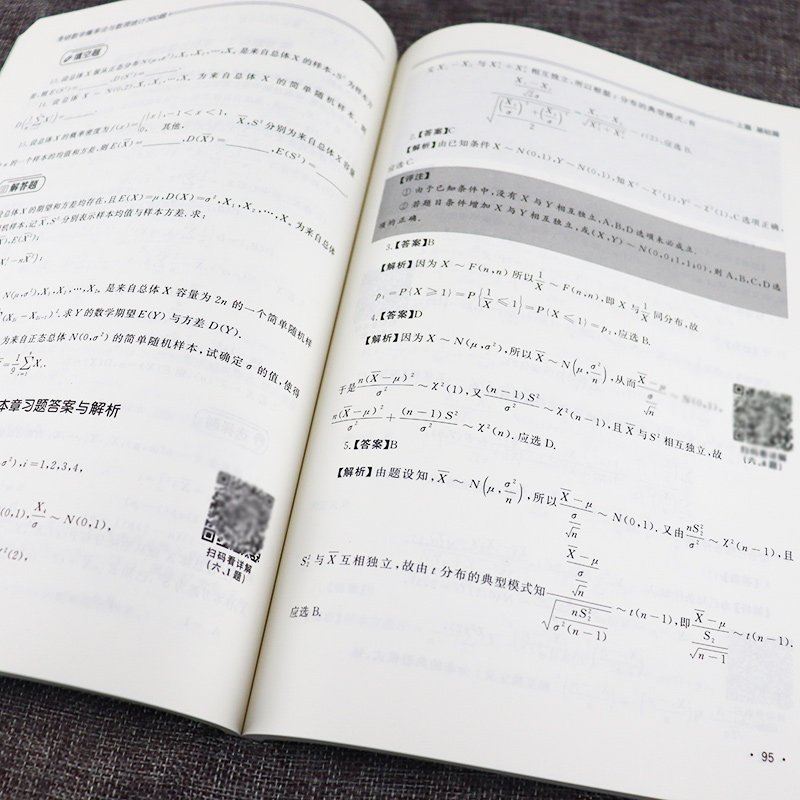 考研数学概率论与数理统计360题
填空题
13. 设总体 X 服从正态分布 N(μ,σ²), X₁,X₂,⋯,Xₙ 是来自总体 X 的样本, S² 为样本方
差,则 E(S²)=______, D(S²)=______.
14. 设总体 X ~ N(0,2), X₁,X₂,⋯,Xₙ 为来自总体 X 的简单随机样本, 则
15. 设总体 X 的概率密度为 f(x)={|x|, -1<x<1, 0, 其他. X̄,S² 分别为来自总体 X 容量
n 的一个样本的均值和方差,则 E(X̄)=______, D(X̄)=______, E(S²)=______
解答题
总体 X 的期望和方差均存在,且 E(X)=μ, D(X)=σ², X₁,X₂,⋯,Xₙ 为来自总体
机样本,记 X̄,S² 分别表示样本均值与样本方差. 求:
), E(X̄²);
²−nX̄²);
N(μ,σ²), X₁,X₂,⋯,X₂ₙ 是来自总体 X 容量为 2n 的一个简单随机样
. 求 Y 的数学期望 E(Y) 与方差 D(Y).
为来自正态总体 N(0,σ²) 的简单随机样本, 试确定 σ 的值, 使得
本章习题答案与解析
σ²), i=1,2,3,4,
(0,1), X₄/σ ~ N(0,1),
χ²(2),
扫码看详解
(六、1题)
上篇 基础篇
X₁−X₂ 与 X₃²+X₄² 相互独立,所以根据 t 分布的典型模式,有
~ t(2), 应选 B.
2.【答案】C
【解析】由已知条件 X ~ N(0,1), Y ~ N(0,1), 知 X² ~ χ²(1), Y² ~ χ²(1), C 选项正确,
应选 C.
【评注】
① 由于已知条件中,没有 X 与 Y 相互独立,A,B,D 选项未必成立.
② 若题目条件增加 X 与 Y 相互独立,或 (X,Y) ~ N(0,0;1,1;0), 则 A,B,C,D 选
项均正确.
3.【答案】B
【解析】因为 X ~ F(n,n) 所以 1/X ~ F(n,n), 即 X 与 1/X 同分布, 故
p₁=P{X⩾1}=P{1/X⩽1}=P{X⩽1}=p₂, 应选 B.
4.【答案】D
【解析】因为 X ~ N(μ,σ²), 所以 X̄ ~ N(μ, σ²/n), 从而 (X̄−μ)/(σ/√n) ~ N(0,1),
于是 n(X̄−μ)²/σ² ~ χ²(1), 又 (n−1)S²/σ² ~ χ²(n−1), 且 X̄ 与 S² 相互独立, 故
n(X̄−μ)²/σ² + (n−1)S²/σ² ~ χ²(n). 应选 D.
扫码看详解
(六、4题)
5.【答案】B
【解析】由题设知, X̄ ~ N(μ, σ²/n), 所以 (X̄−μ)/(σ/√n) ~ N(0,1). 又由 nS₂²/σ² ~ χ²(n−1), 且
S₂² 与 X̄ 互相独立, 故由 t 分布的典型模式知 ((X̄−μ)/(σ/√n))/√(nS₂²/(σ²(n−1))) ~ t(n−1), 即 (X̄−μ)/(S₂/√(n−1)) ~ t(n−1).
应选 B.
· 95 ·